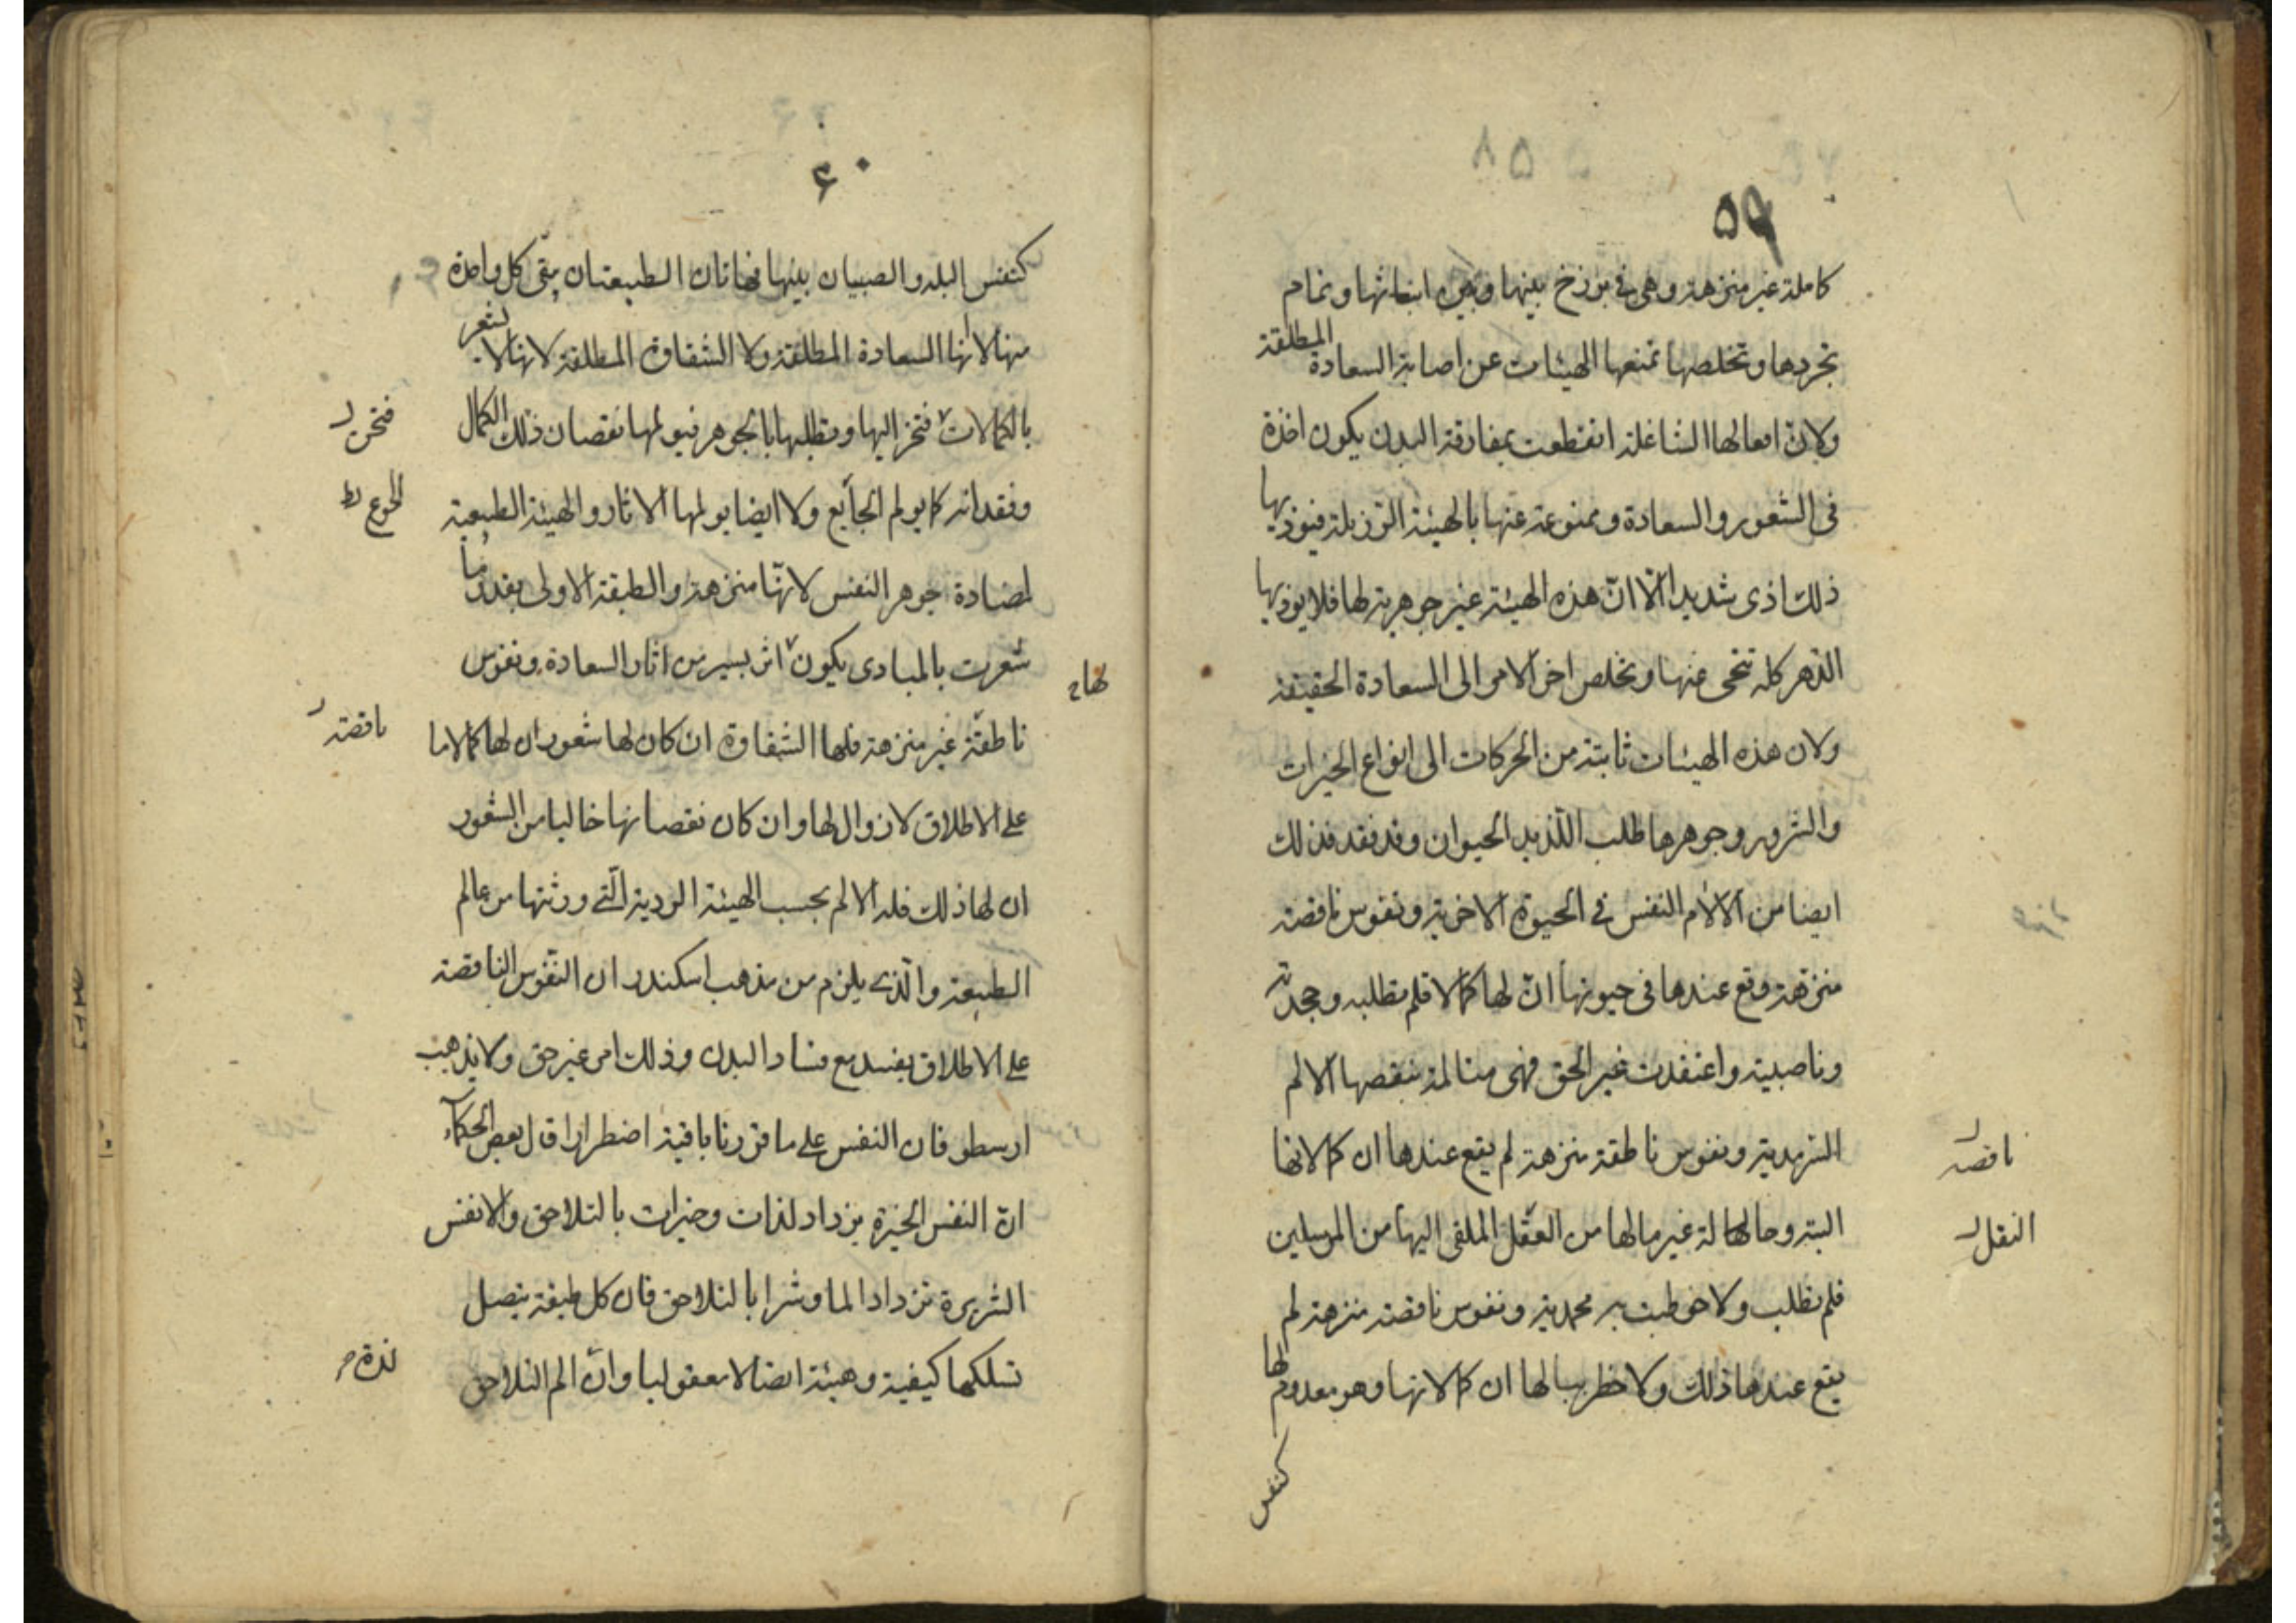 ۵۹
كاملة غير منزهة وهى فى برزخ بينها وبين ابنائها وتمام
تجردها وتخلصها تمنعها الهيئات عن اصابة السعادة المطلقة
ولان افعالها الشاغلة انقطعت بمفارقة البدن يكون اخذة
فى الشعور والسعادة وممنوعة عنها بالهيئة الرزيلة فيوذيها
ذلك اذى شديدا الّا انّ هذه الهيئة غير جوهرية لها فلا يوذيها
الدّهر كله تنمحى عنها وتخلص اخر الامر الى السعادة الحقيقة
ولان هذه الهيئات ثابتة من الحركات الى انواع الخيرات
والشرور وجوهرها طلب اللّذيد الحيوان وقد فقد فذلك
ايضا من الالام النفس فى الحيوة الاخرية ونفوس ناقصة
منزهة وقع عندها فى حيوتها انّ لها كمالا فلم تطلبه وجحدته
وناصبية واعتقدت غير الحق فهى متالمة بنقصها الالم
السّرمدية ونفوس ناطقة منزهة لم يقع عندها ان كمالاتها
ناقصه
البتة وحالها لة غير مالها من العقل الملقى اليها من المرسلين
النقل
فلم تطلب ولا خوطبت به محمدية ونفوس ناقصة منزهة لم
يقع عندها ذلك ولا خطر ببالها ان كمالاتها وهو معدوم لها
كنفس
۶۰
كنفس البله والصبيان بينها فهاتان الطبيعتان يبقى كل واحدة
منها لا انها السعادة المطلقة ولا الشقاوة المطلقة لانها لا تشعر
بالكمالات فتخر اليها وتطلبها بالجوهر فيولمها نقصان ذلك الكمال
فتخر
وفقدانه كما يولم الجآيع ولا ايضا يولمها الاثار والهيئة الطبيعية
الجوع
لمضادة جوهر النفس لانهّا منزهة والطبقة الاولى بقدر ما
شعرت بالمبادى يكون اثر يسير من اثار السعادة ونفوس
لها
ناطقّة غير منزهة فلها الشقاوة ان كان لها شعور ان لها كمالا ما
ناقصة
على الاطلاق لا زوال لها وان كان نقصانها خاليا من الشعور
ان لها ذلك فله الالم بحسب الهيئة الردية الّتى ورثتها من عالم
الطبيعة والّذى يلزم من مذهب اسكندر ان النفّوس الناقصة
على الاطلاق يفسد مع فساد البدن وذلك امر غير حق ولا يذهب
ارسطو فان النفس على ما قررنا باقية اضطرارا قال بعض الحكمآء
انّ النفس الخيرة يزداد لذات وخيرات بالتلاحق والانفس
الشريرة تزداد الما وشرا بالتلاحق فان كل طبقة يتصل
تسلكها كيفية وهيئة اتصالا معقوليا وانّ الم التلاحق
لذة